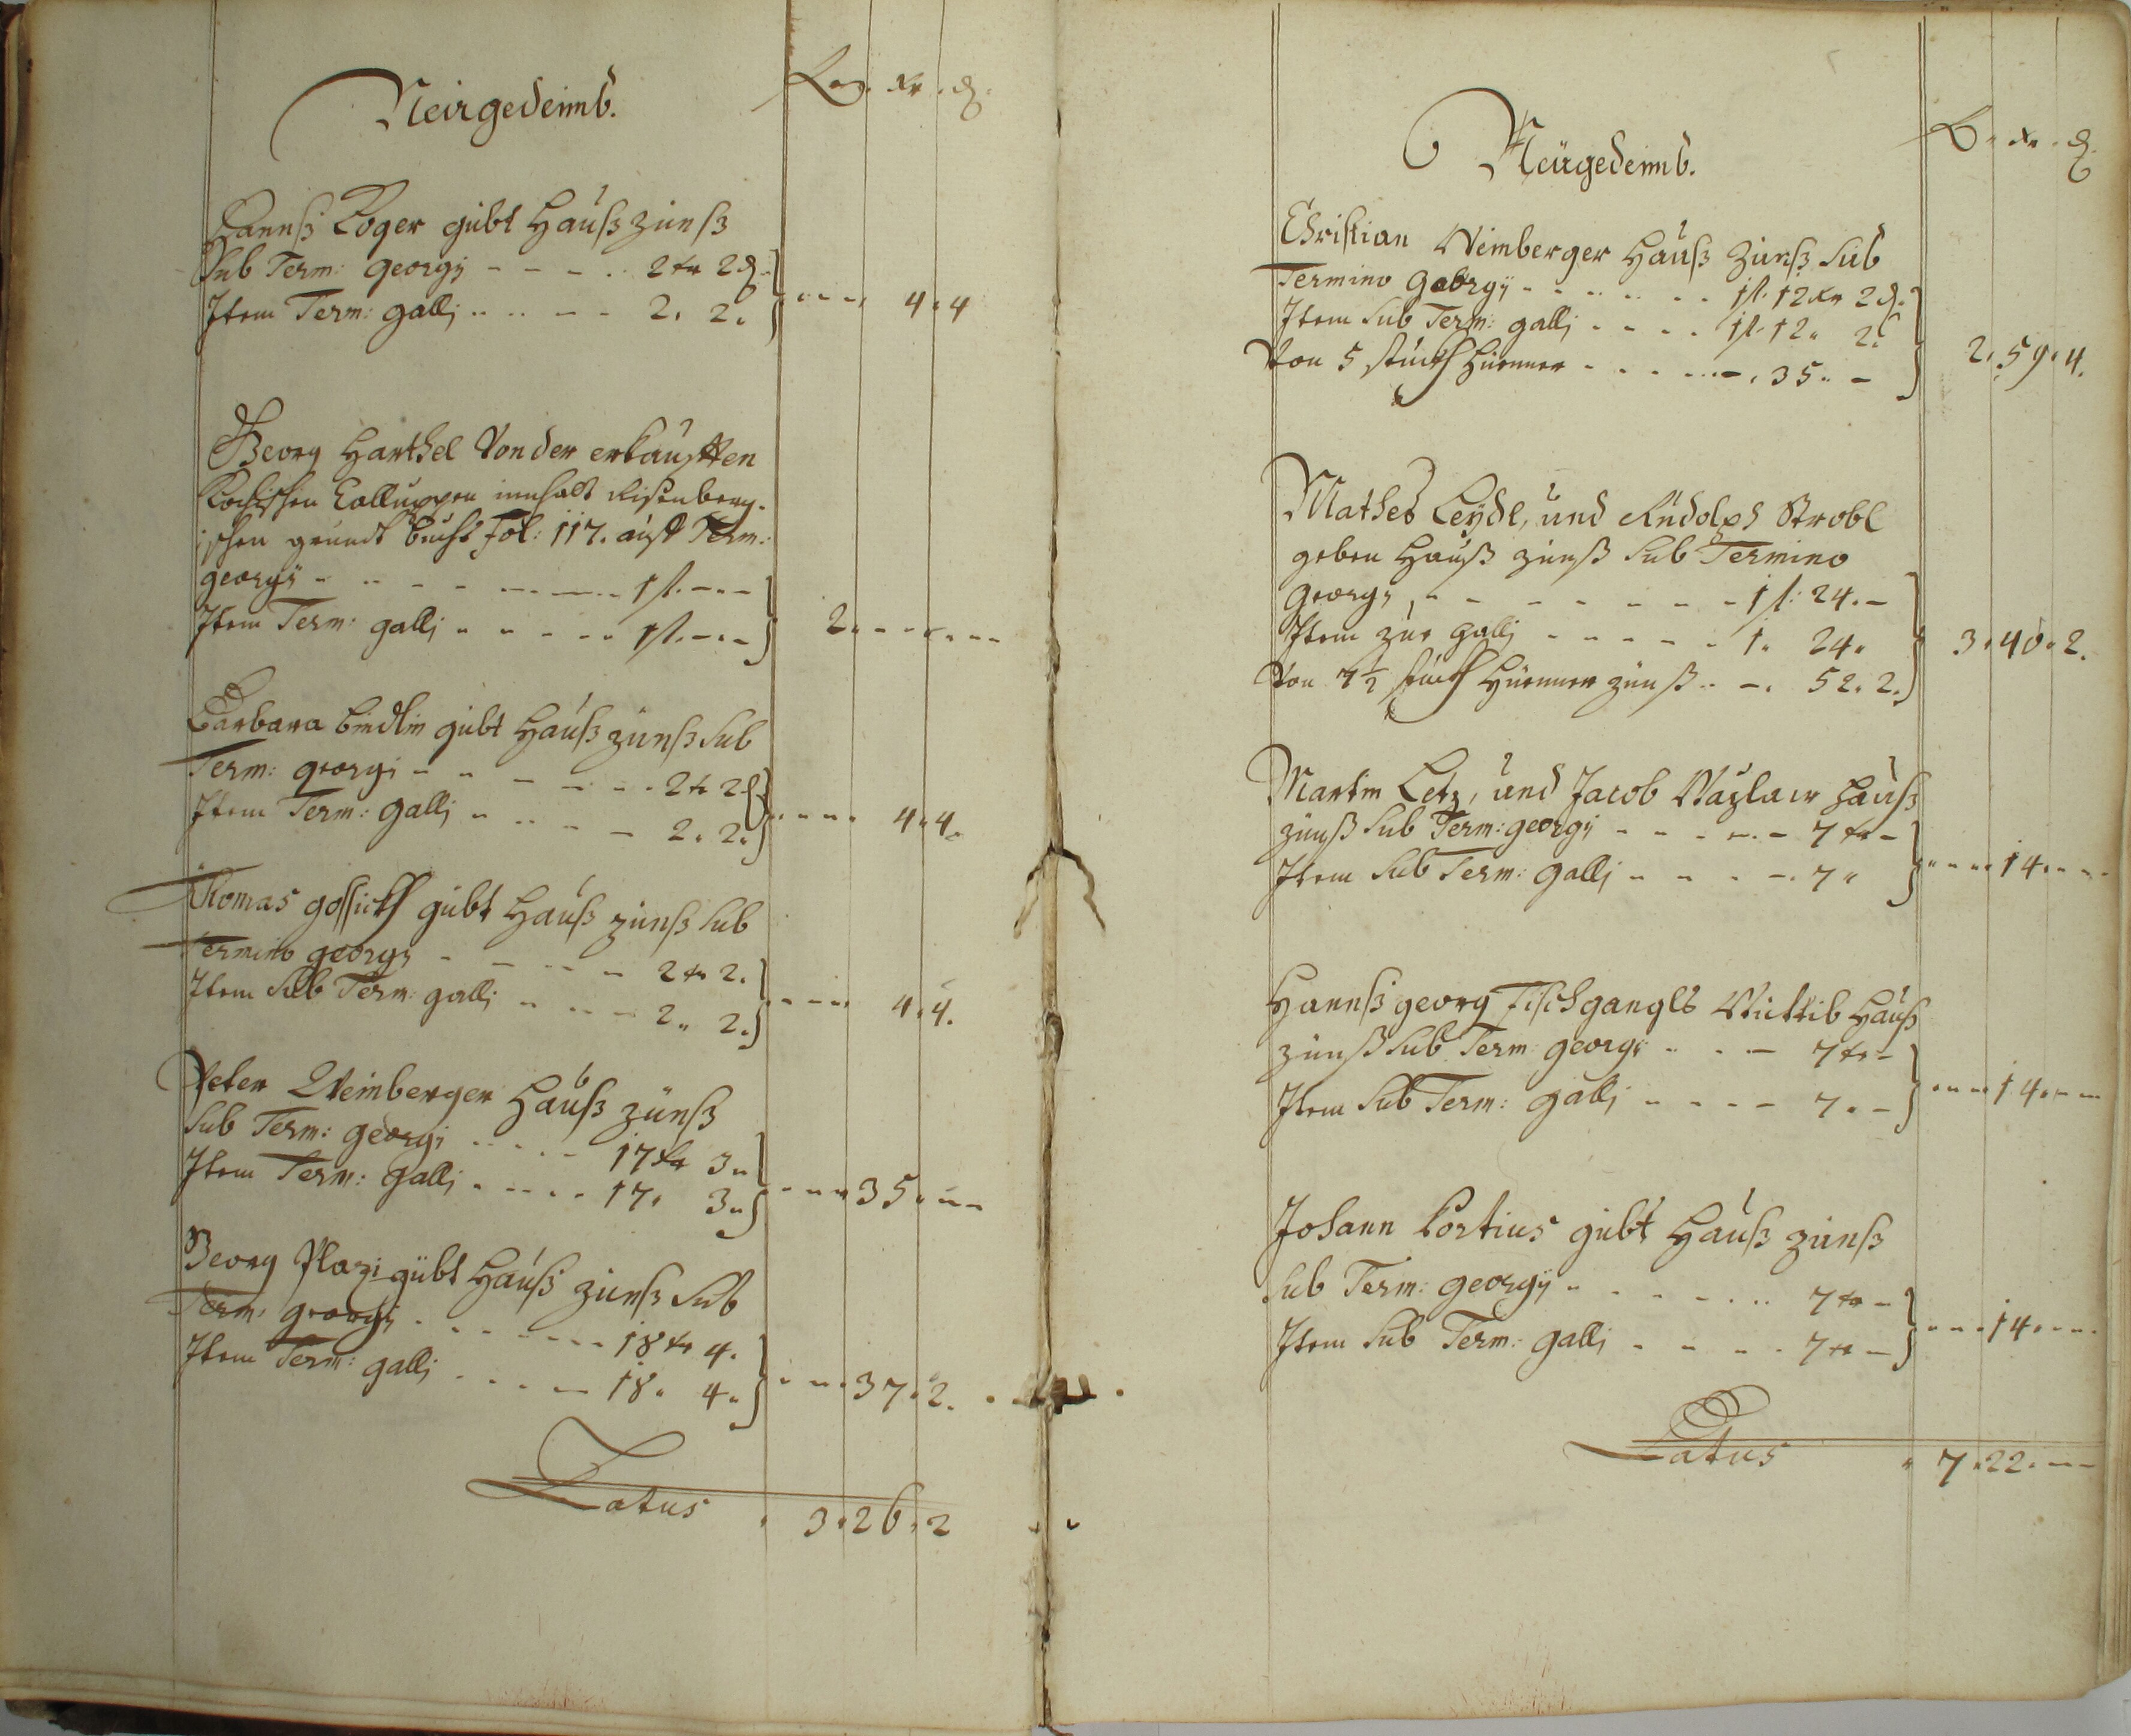 Neügedeimb.
fl. xr. ₰.
Hannß Koger gübt Hauß zünß
Sub Term: georgÿ - - - - 2 xr 2 ₰.
Item Term: gallj - - - - 2. 2. - - - 4. 4
Georg Harthel Von der erkaufften
Kochischen Calluppen innhalt Risenberg.
ischen grundt buchs Fol: 117. auff Term:
georgÿ - - - - - - 1 fl. - - -
Item Term: gallj - - - - - 1 fl. - - - 2. - - - - -
Barbara bindlin gübt Hauß zünß Sub
Term: georgi - - - - - 2 xr 2 ₰
Item Term: gallj - - - - 2. 2. - - - - 4. 4.
Thomas gossickh gübt Hauß zünß Sub
Termino georgÿ - - - - 2 xr 2.
Item Sub Term: gallj - - - - 2. 2. - - - - 4. 4.
Peter Weinberger Hauß zünß
Sub Term: georgi - - - - 17 xr 3.
Item Term: gallj - - - - 17. 3. - - - 35. - -
Georg Plazi gübt Hauß zünß Sub
Term: georgÿ - - - - - - 18 xr 4.
Item Term: gallj - - - - 18. 4. - - - 37. 2.
Latus . 3. 26. 2
Neügedeimb.
fl. xr. ₰.
Christian Weinberger Hauß Zünß Sub
Termino Georgÿ - - - - - - 1 fl. 12 xr 2 ₰.
Item Sub Term: gallj - - - - 1 fl. 12. 2.
Von 5 stückh Hüenner - - - - - . 35. - 2. 59. 4.
Mathes Leÿdl, und Rudolph Strobl
geben Hauß zünß Sub Termino
Georgÿ, - - - - - - - 1 fl: 24. -
Item zue gallj - - - - - 1. 24.
Von 7½ stückh Hüenner zünß - - . 52. 2. 3. 40. 2.
Martin Letz, und Jacob Wazlaw Hauß
zünß Sub Term: georgÿ - - - - - 7 xr -
Item Sub Term: gallj - - - - 7. - - - 14. - -
Hannß georg Fischgangls Wittib Hauß
zünß Sub Term: georgÿ - - - 7 xr -
Item Sub Term: gallj - - - - 7. - - - - 14. - -
Johann Portius gübt Hauß zünß
Sub Term: georgÿ - - - - - - 7 xr -
Item Sub Term: gallj - - - - 7 xr - - - - 14. - -
Latus . 7. 22. - -